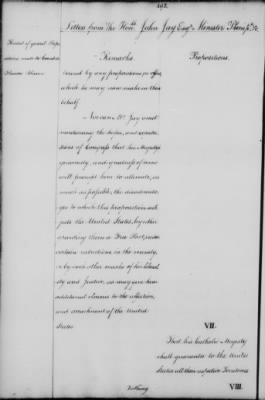 192.
Letters from The Honble John Jay Esqr Minister Plenipo &c
Remarks
Propositions.
bound by any proposition or offer,
which he may now make in this
behalf.
Nor can Mr. Jay omit
mentioning the hopes, and expecta-
tions of Congress that his Majesty's
generosity, and greatness of mind
will prompt him to alleviate, as
much as possible, the disadvanta-
ges to which this proposition sub-
jects the United States, by either
granting them a Free Port, under
certain restrictions in the vicinity,
or by such other marks of his liberal-
ity and Justice, as may give him
additional claims to the affection,
and attachment of the United
States
VII.
That his Catholic Majesty
shall guarantee to the United
States all their respective Territories
Nothing
VIII.